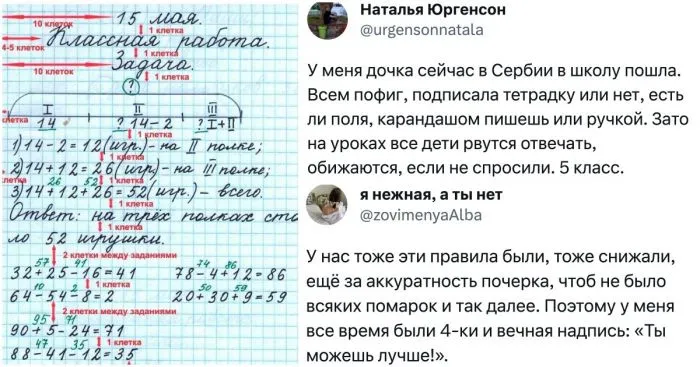 15 мая.
10 клеток
1 клетка
4-5 клеток
Классная работа.
1 клетка
10 клеток
Задача.
1 клетка
?
I II III
14 ? 14-2 ? I+II
клетка
1 клетка
1) 14-2=12 (игр.)- на II полке;
2) 14+12=26 (игр.)- на III полке;
26 52
3) 14+12+26=52 (игр.)- всего.
1 клетка
Ответ: на трёх полках сто
ло 52 игрушки.
2 клетки между заданиями
57 41 74 86
32+25-16=41 78-4+12=86
1 клетка
10 2 50 59
64-54-8=2 20+30+9=59
2 клетки между заданиями
95 71
90+5-24=71
47 35 1 клетка
88-41-12=35
Наталья Юргенсон
@urgensonnatala
У меня дочка сейчас в Сербии в школу пошла.
Всем пофиг, подписала тетрадку или нет, есть
ли поля, карандашом пишешь или ручкой. Зато
на уроках все дети рвутся отвечать,
обижаются, если не спросили. 5 класс.
я нежная, а ты нет
@zovimenyaAlba
У нас тоже эти правила были, тоже снижали,
ещё за аккуратность почерка, чтоб не было
всяких помарок и так далее. Поэтому у меня
все время были 4-ки и вечная надпись: «Ты
можешь лучше!».